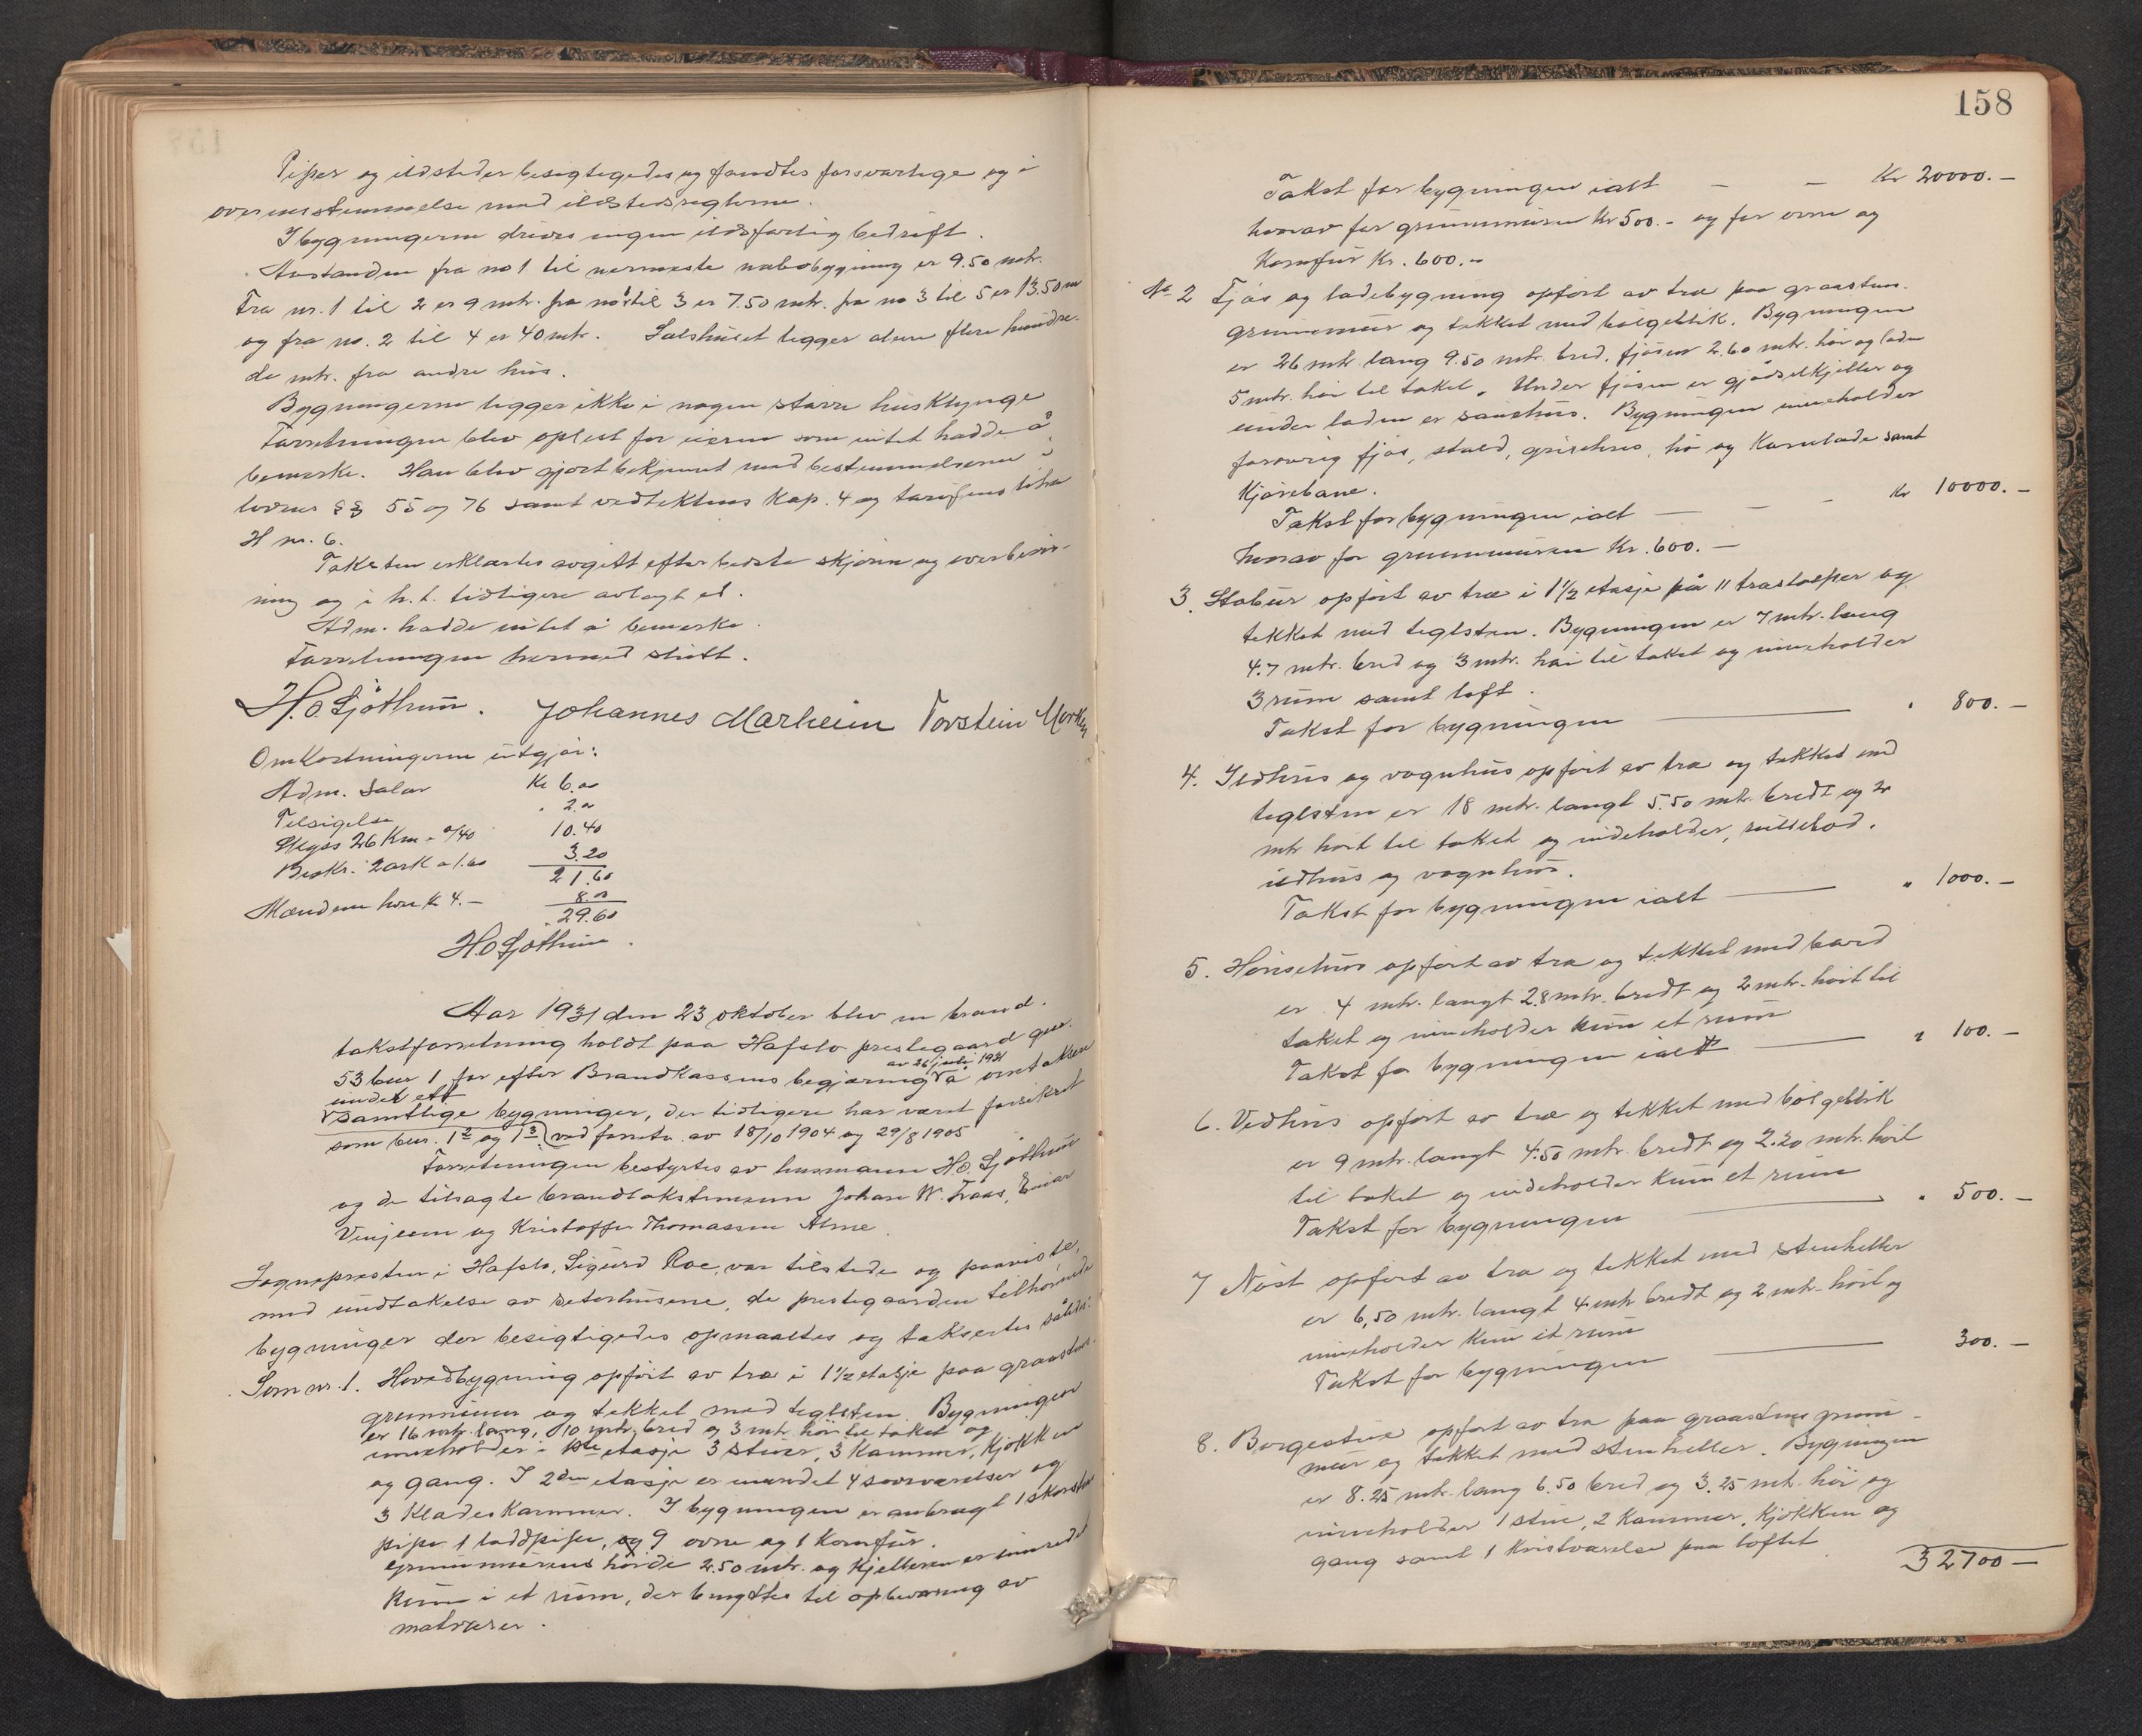 Piper og ildsteder besigtigedes og fandtes forsvarlige og i
overensstemmelse med ildstedsreglerne.
I bygningerne drives ingen ildsfarlig bedrift.
Avstanden fra no 1 til nærmeste nabobygning er 9.50 mtr.
Fra nr. 1 til 2 er 9 mtr. fra no 1 til 3 er 7.50 mtr. fra no 3 til 5 er 13.50 m
og fra no. 2 til 4 er 40 mtr. Selshuset ligger alene flere hundre-
de mtr. fra andre hus.
Bygningerne ligger ikke i nogen større husklynge
Forretningen blev oplest for eieren som intet hadde å
bemerke. Han blev gjort bekjennt med bestemmelserne i
lovens §§ 55 og 76 samt vedtektens Kap. 4 og tariffens litra
H nr. 6.
Taksten erklærtes avgitt efter bedste skjønn og overbevis-
ning og i h.t. tidligere avlagt ed.
Adm. hadde intet å bemerke.
Forretningen hermed slutt.
H. O. Sjøthun. Johannes Marheim Torstein Morken
Omkostningerne utgjør:
Adm. Salær Kr 6.00
Tilsigelse " 2.00
Skyss 26 Km a 0/40 10.40
Beskr. 2 ark a 1.60 3.20
21.60
Mændene hver kr 4.- 8.00
29.60
H. O Sjøthun.
Aar 1931 den 23 oktober blev en brand-
takstforretning holdt paa Hafslo prestegaard gnr.
53 bnr 1 for efter Brandkassens begjæring av 26 juli 1931 å omtaksere
under ett
samtlige bygninger, der tidligere har været forsikret
som bnr. 1² og 1³ ved forretn. av 18/10 1904 og 29/8 1905
Forretningen bestyrtes av lensmann H.O. Sjøthun
og de tilsagte brandtakstmenn Johan W. Fraas, Einar
Vinjum og Kristoffer Thomassen Alme.
Sognepresten i Hafslo, Sigurd Roe, var tilstede og paaviste,
med undtakelse av seterhusene, de prestegaarden tilhørende
bygninger der besigtigedes opmaaltes og taksertes således:
Som nr. 1. Hovedbygning opført av træ i 1 1/2 etasje paa graastens-
grunnmur og tekket med teglsten. Bygningen
er 16 mtr. lang, 10 mtr. bred og 3 mtr. høi til taket og
inneholder i 1ste etasje 3 stuer, 3 kammer, kjøkken
og gang. I 2den etasje er innredet 4 soveværelser og
3 klædeskammer. I bygningen er anbragt 1 skorstens
pipe 1 loddpipe, og 9 ovne og 1 komfür.
Grunnmurens høide 2.50 mtr. og kjelleren er innredet
kun i et rum, der benyttes til opbevaring av
matvarer.
158
Takst for bygningen ialt — — Kr 20000.-
hvorav for grunnmuren Kr 500.- og for ovne og
Komfür Kr. 600.-
No 2 Fjøs og ladebygning opført av træ paa graastens-
grunnmur og tekket med bølgeblik. Bygningen
er 26 mtr. lang 9.50 mtr. bred. fjøsen 2.60 mtr. høi og laden
5 mtr. høi til taket. Under fjøsen er gjødselkjeller og
under laden er sauehus. Bygningen inneholder
forøvrig fjøs, stald, grisehus, hø og kornlade samt
Kjørebane.
Takst for bygningen ialt — — — Kr 10000.-
hvorav for grunnmuren Kr. 600.-
3. Stabur opført av træ i 1 1/2 etasje på 11 træstolper og
tekket med teglsten. Bygningen er 7 mtr. lang
4.7 mtr. bred og 3 mtr. høi til taket og inneholder
3 rum samt loft.
Takst for bygningen — " 800.-
4. Ildhus og vognhus opført av træ og tekket med
teglsten er 18 mtr. langt 5.50 mtr. bredt og 2
mtr høit til taket og indeholder, rullebod,
ildhus og vognhus.
Takst for bygningen ialt — " 1000.-
5. Hønsehus opført av træ og tekket med bord
er 4 mtr. langt 2.8 mtr. bredt og 2 mtr. høit til
taket og inneholder kun et rum
Takst for bygningen ialt — " 100.-
6. Vedhus opført av træ og tekket med bølgeblik
er 9 mtr. langt 4.50 mtr. bredt og 2.20 mtr. høit
til taket og indeholder kun et rum
Takst for bygningen — " 500.-
7 Nøst opført av træ og tekket med stenheller
er 6,50 mtr. langt 4 mtr bredt og 2 mtr. høit og
inneholder kun et rum
Takst for bygningen — 300.-
8. Borgestue opført av træ paa graastens grunn-
mur og tekket med stenheller. Bygningen
er 8.25 mtr. lang 6.50 bred og 3.25 mtr. høi og
inneholder 1 stue, 2 kammer, kjøkken og
gang samt 1 kvistværelse paa loftet
32700-